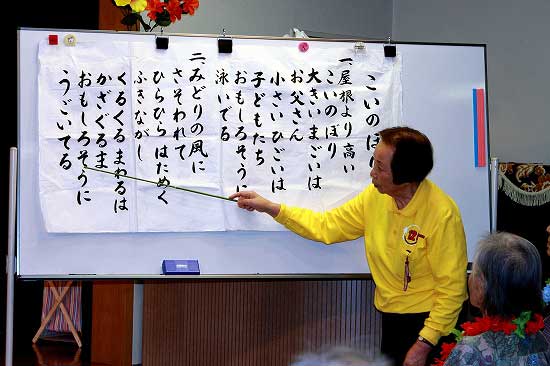 こいのぼり
一、屋根より高い
こいのぼり
大きいまごいは
お父さん
小さいひごいは
子どもたち
おもしろそうに
泳いでる
二、みどりの風に
さそわれて
ひらひらはためく
ふきながし
くるくるまわるは
かざぐるま
おもしろそうに
うごいてる